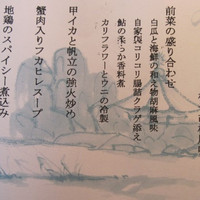 前菜の盛り合わせ
白瓜と海鮮の和え物胡麻風味
自家製コリコリ腸詰クラゲ添え
鮎の柔らか香料煮
カリフラワーとウニの冷製
甲イカと帆立の強火炒め
蟹肉入りフカヒレスープ
地鶏のスパイシー煮込み